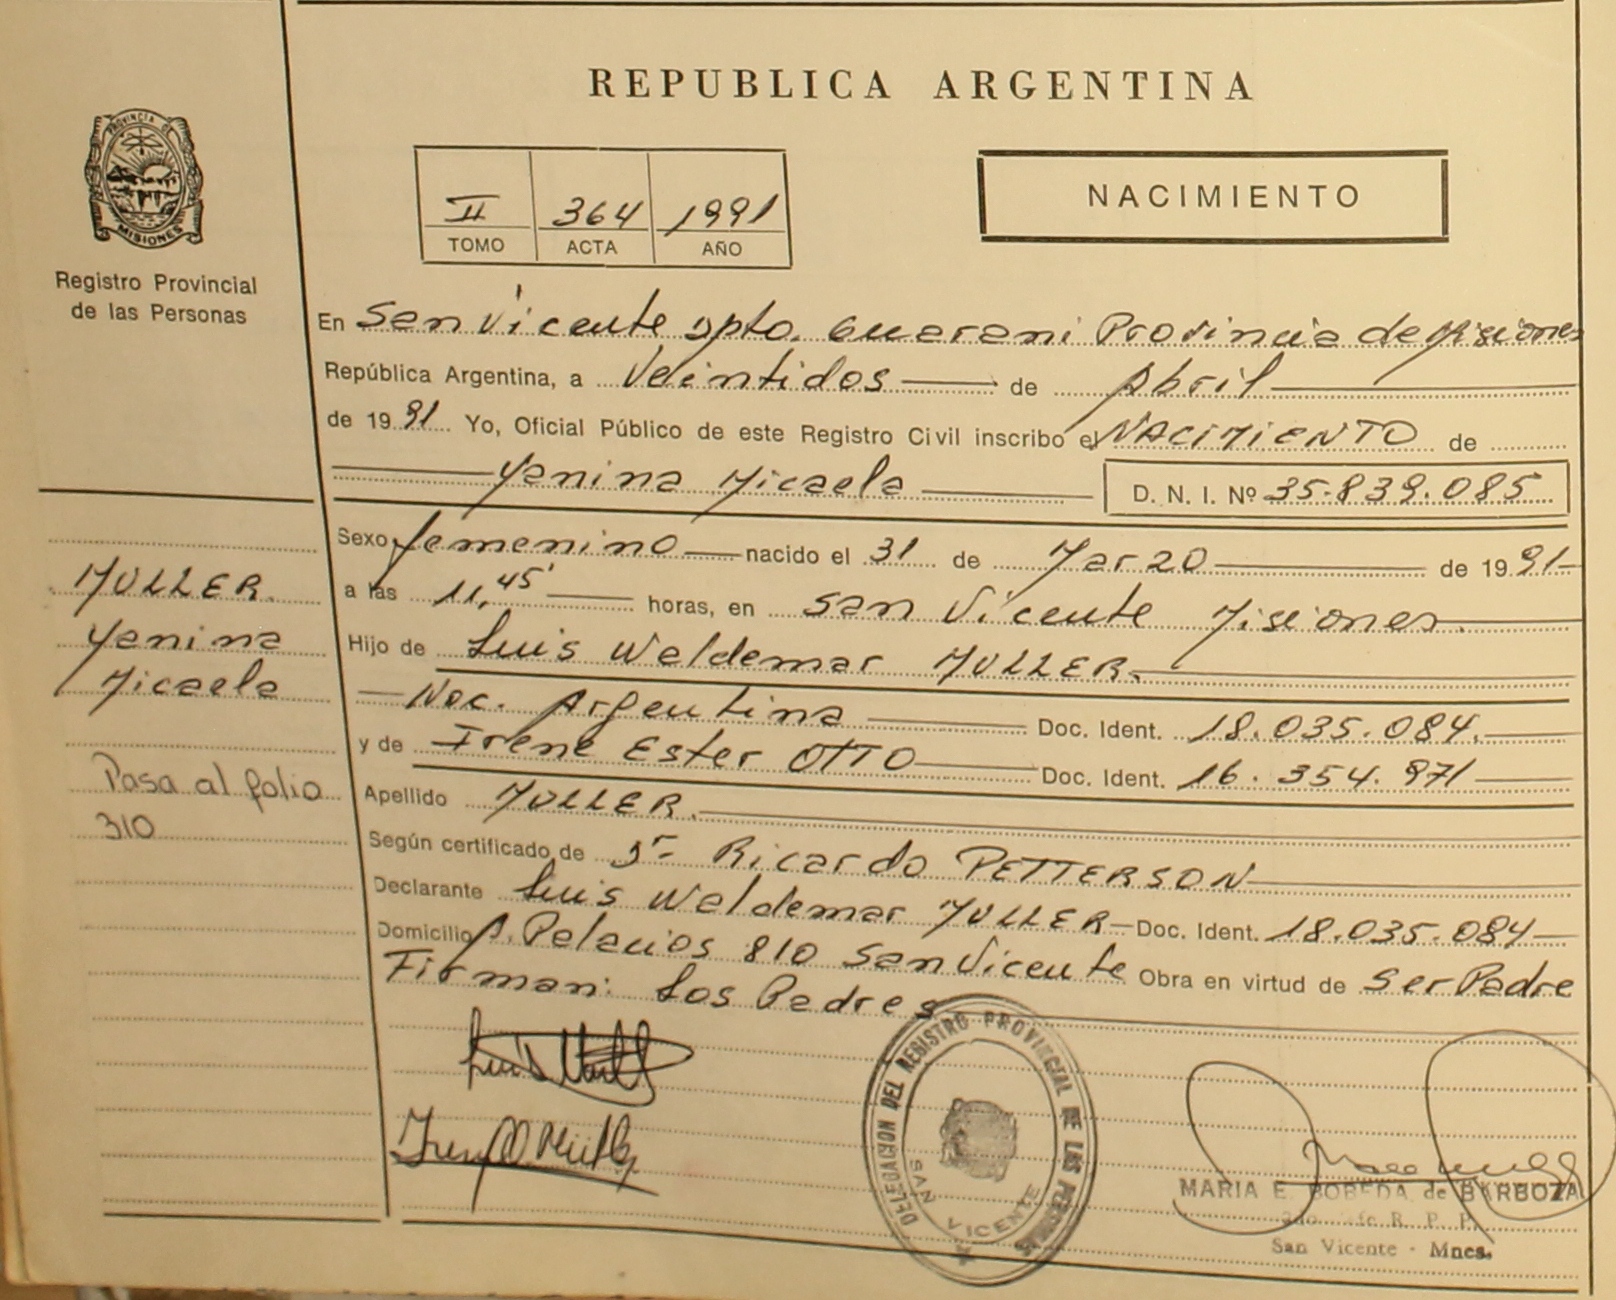 REPUBLICA ARGENTINA
PROVINCIA DE
MISIONES
Registro Provincial
de las Personas
II 364 1991
TOMO ACTA AÑO
NACIMIENTO
En San Vicente Dpto. Guarani Provincia de Misiones
República Argentina, a Veintidos de Abril
de 1991 Yo, Oficial Público de este Registro Civil inscribo el NACIMIENTO de
Yanina Micaela D. N. I. Nº 35.839.085
Sexo femenino nacido el 31 de Marzo de 1991
a las 11,45' horas, en San Vicente Misiones.
Hijo de Luis Waldemar MULLER.
Nac. Argentina Doc. Ident. 18.035.084.
y de Irene Ester OTTO Doc. Ident. 16.354.971
Apellido MULLER.
Según certificado de Dr. Ricardo PETTERSON
Declarante Luis Waldemar MULLER Doc. Ident. 18.035.084
Domicilio A. Palacios 810 San Vicente Obra en virtud de Ser Padre
Firman: Los Padres
MULLER.
Yanina
Micaela
Pasa al folio
310
DELEGACION DEL REGISTRO PROVINCIAL DE LAS PERSONAS
SAN VICENTE
MARIA E. BOBEDA de BARBOZA
R. P. P.
San Vicente - Mnes.